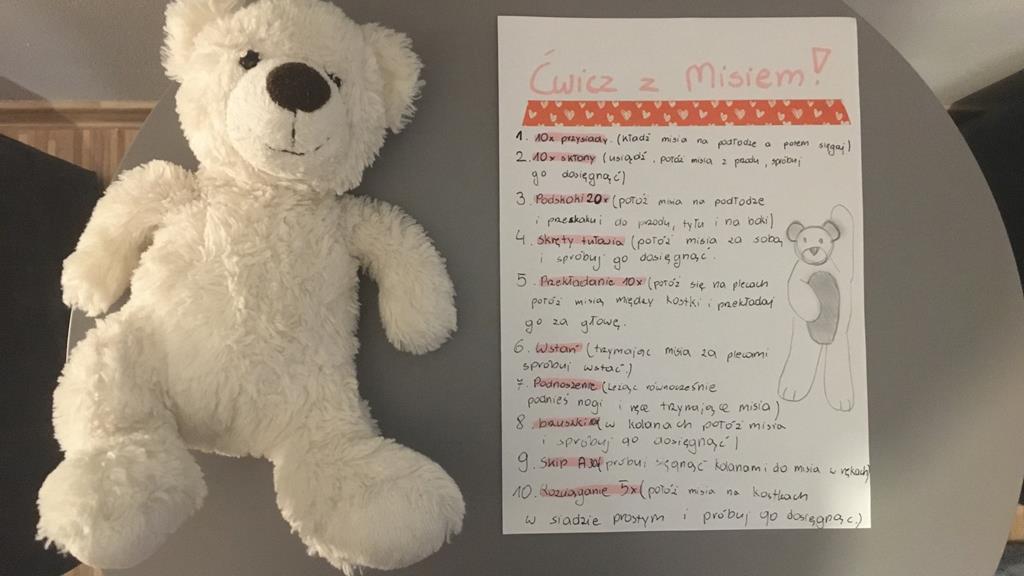 Ćwicz z Misiem!
1. 10x przysiady. (kładź misia na podłodze a potem sięgaj)
2. 10x skłony (usiądź, połóż misia z przodu, spróbuj
go dosięgnąć)
3. Podskoki 20x (połóż misia na podłodze
i przeskakuj do przodu, tyłu i na boki)
4. Skręty tułowia (połóż misia za sobą
i spróbuj go dosięgnąć.
5. Przekładanie 10x (połóż się na plecach
połóż misia między kostki i przekładaj
go za głowę.
6. Wstań (trzymając misia za plecami
spróbuj wstać.)
7. Podnoszenie (leżąc równocześnie
podnieś nogi i ręce trzymające misia)
8. brzuszki (w kolanach połóż misia
i spróbuj go dosięgnąć)
9. Skip A (próbuj sięgnąć kolanami do misia w rękach)
10. Rozciąganie 5x (połóż misia na kostkach
w siadzie prostym i próbuj go dosięgnąć.)